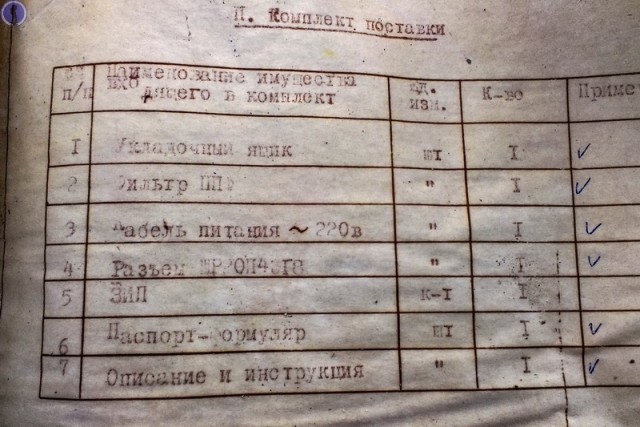 П. Комплект поставки
п/п Наименование имущества входящего в комплект ед. изм. К-во Приме
I Укладочный ящик шт I ✓
2 Фильтр " I ✓
3 Кабель питания ~ 220в " I ✓
4 Разъем " I ✓
5 ЗИП к-т I
6 Паспорт-формуляр шт I ✓
7 Описание и инструкция " I ✓